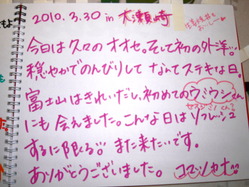 2010.3.30 in 大瀬崎
今日は久々のオオセ。そして初の外洋。
穏やかでのんびりして なんてステキな日。
富士山はきれいだし、初めてのウミウシさん
にも会えました。こんな日はリフレッシュ
するに限る。また来たいです。
ありがとうございました。